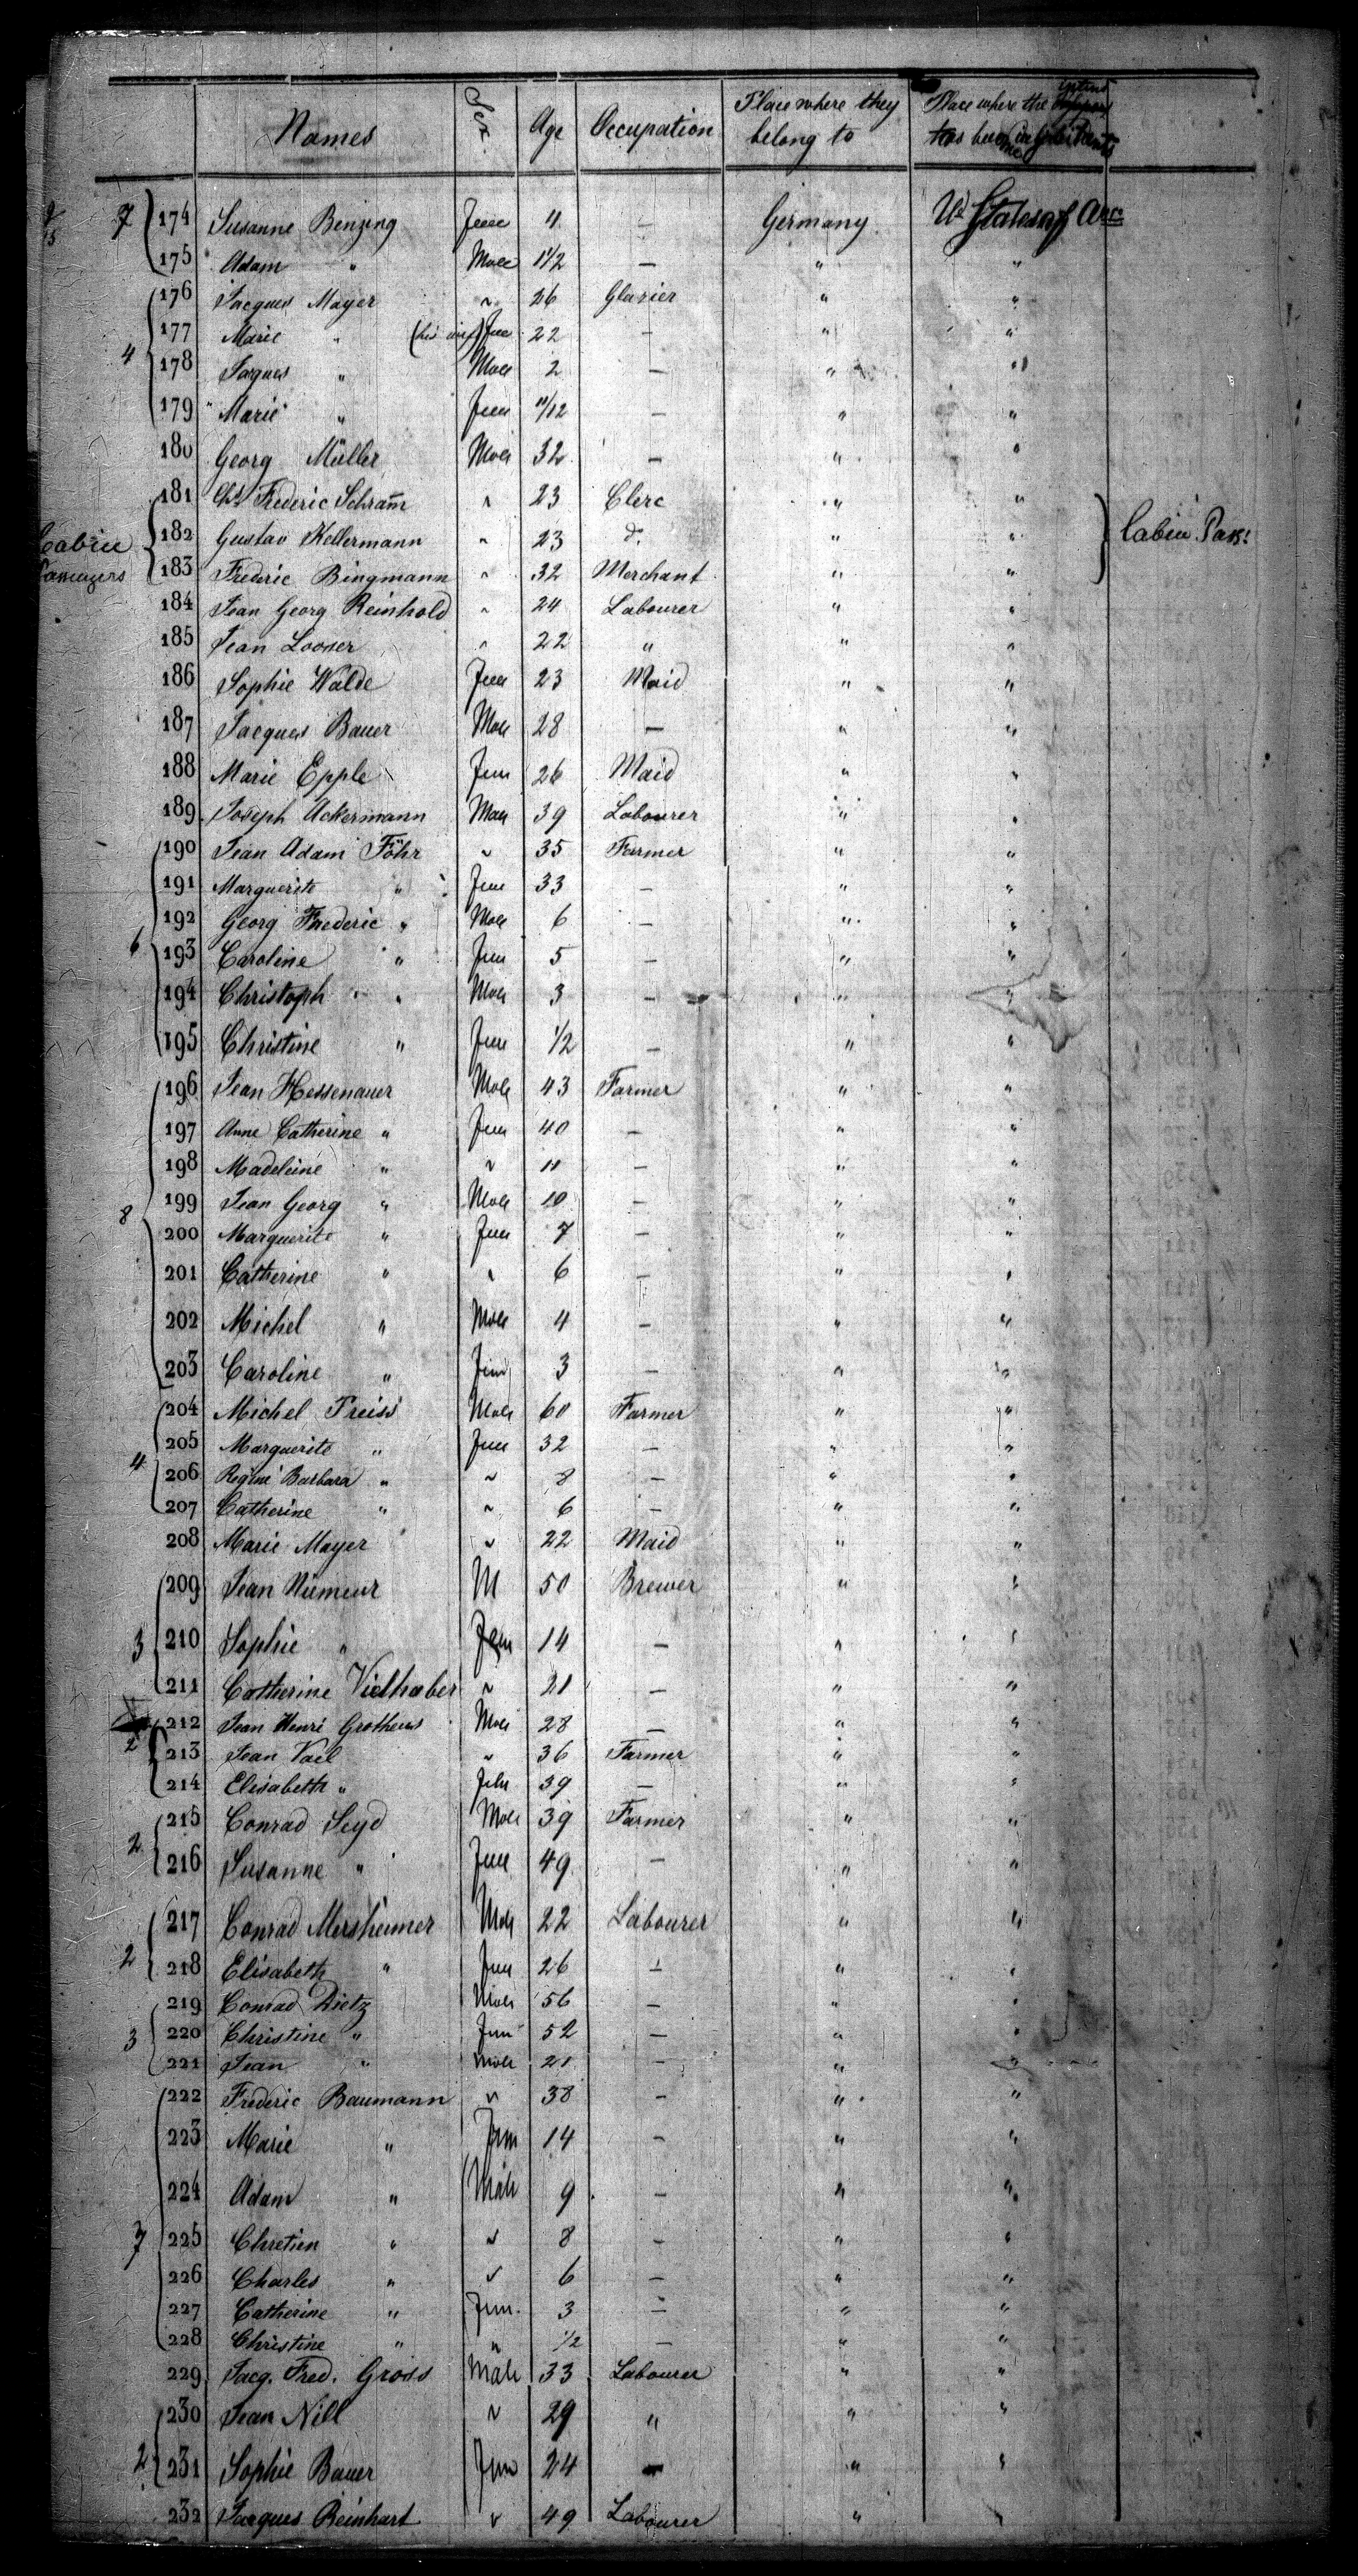 Names Sex Age Occupation Place where they belong to Place where the intend has become inhabitants
7 174 Susanne Benzing Feme 4 — Germany Ud States of Ame
175 Adam " Male 1 1/2 — " "
176 Jacques Mayer " 26 Glazier " "
177 Marie " (his wife) Fem 22 — " "
4 178 Jaques " Male 2 — " "
179 Marie " Fem 11/12 — " "
180 Georg Müller Male 32 — " "
181 Chs Frederic Schram̄ " 23 Clerc " "
Cabin Passengers 182 Gustav Kellermann " 23 do. " " Cabin Pass:
183 Frederic Bingmann " 32 Merchant " "
184 Jean Georg Reinhold " 24 Labourer " "
185 Jean Looser " 22 " " "
186 Sophie Walde Fem 23 Maid " "
187 Jacques Bauer Male 28 — " "
188 Marie Epple Fem 26 Maid " "
189 Joseph Ackermann Male 39 Labourer " "
190 Jean Adam Föhr " 35 Farmer " "
191 Marguerite " Fem 33 — " "
192 Georg Frederic " Male 6 — " "
6 193 Caroline " Fem 5 — " "
194 Christoph " Male 3 — " "
195 Christine " Fem 1/2 — " "
196 Jean Hessenauer Male 43 Farmer " "
197 Anne Catherine " Fem 40 — " "
198 Madeleine " " 11 — " "
199 Jean Georg " Male 10 — " "
8 200 Marguerite " Fem 7 — " "
201 Catherine " " 6 — " "
202 Michel " Male 4 — " "
203 Caroline " Fem 3 — " "
204 Michel Preiss Male 60 Farmer " "
205 Marguerite " Fem 32 — " "
4 206 Regine Barbara " " 8 — " "
207 Catherine " " 6 — " "
208 Marie Mayer " 22 Maid " "
209 Jean Niemeur M 50 Brewer " "
3 210 Sophie " Fem 14 — " "
211 Catherine Vielhaber " 21 — " "
212 Jean Henri Grotheus Male 28 — " "
2 213 Jean Vael " 36 Farmer " "
214 Elisabeth " Fem 39 — " "
215 Conrad Seyd Male 39 Farmer " "
2 216 Susanne " Fem 49 — " "
217 Conrad Mersheimer Male 22 Labourer " "
2 218 Elisabeth " Fem 26 — " "
219 Conrad Dietz Male 56 — " "
3 220 Christine " Fem 52 — " "
221 Jean " Male 21 — " "
222 Frederic Baumann " 38 — " "
223 Marie " Fem 14 — " "
224 Adam " Male 9 — " "
7 225 Chretien " " 8 — " "
226 Charles " " 6 — " "
227 Catherine " Fem. 3 — " "
228 Christine " " 1/2 — " "
229 Jacq. Fred. Gross Male 33 Labourer " "
230 Jean Nill " 29 " " "
2 231 Sophie Bauer Fem 24 — " "
232 Jacques Reinhart " 49 Labourer " "